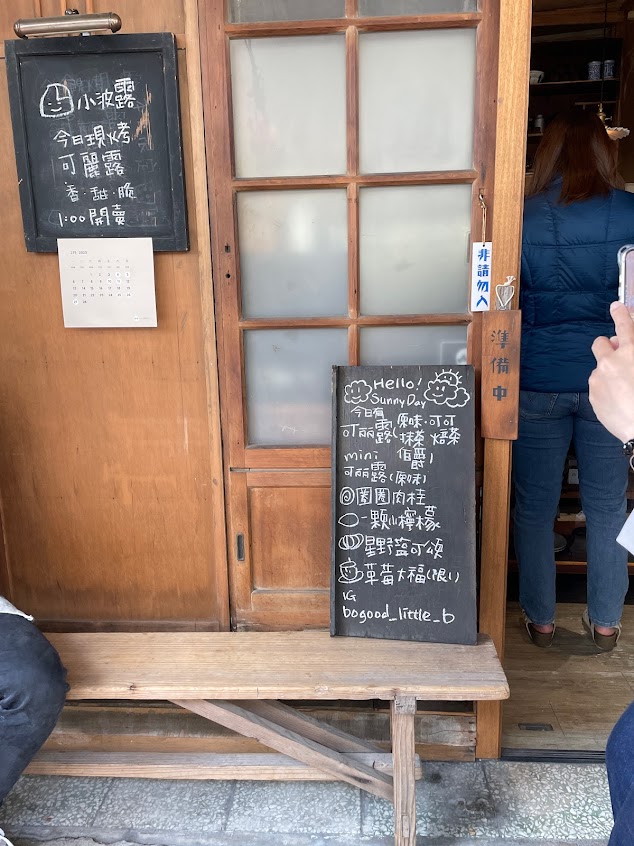 小波露
今日現烤
可麗露
香·甜·脆
1:00開賣
非請勿入
準備中
Hello!
Sunny Day
今日有
可丽露(原味·可可
抹茶 焙茶
伯爵)
mini
可丽露(原味)
圈圈肉桂
一顆小檸檬
星野鹽可頌
草莓大福(限1)
IG
bogood_little_b